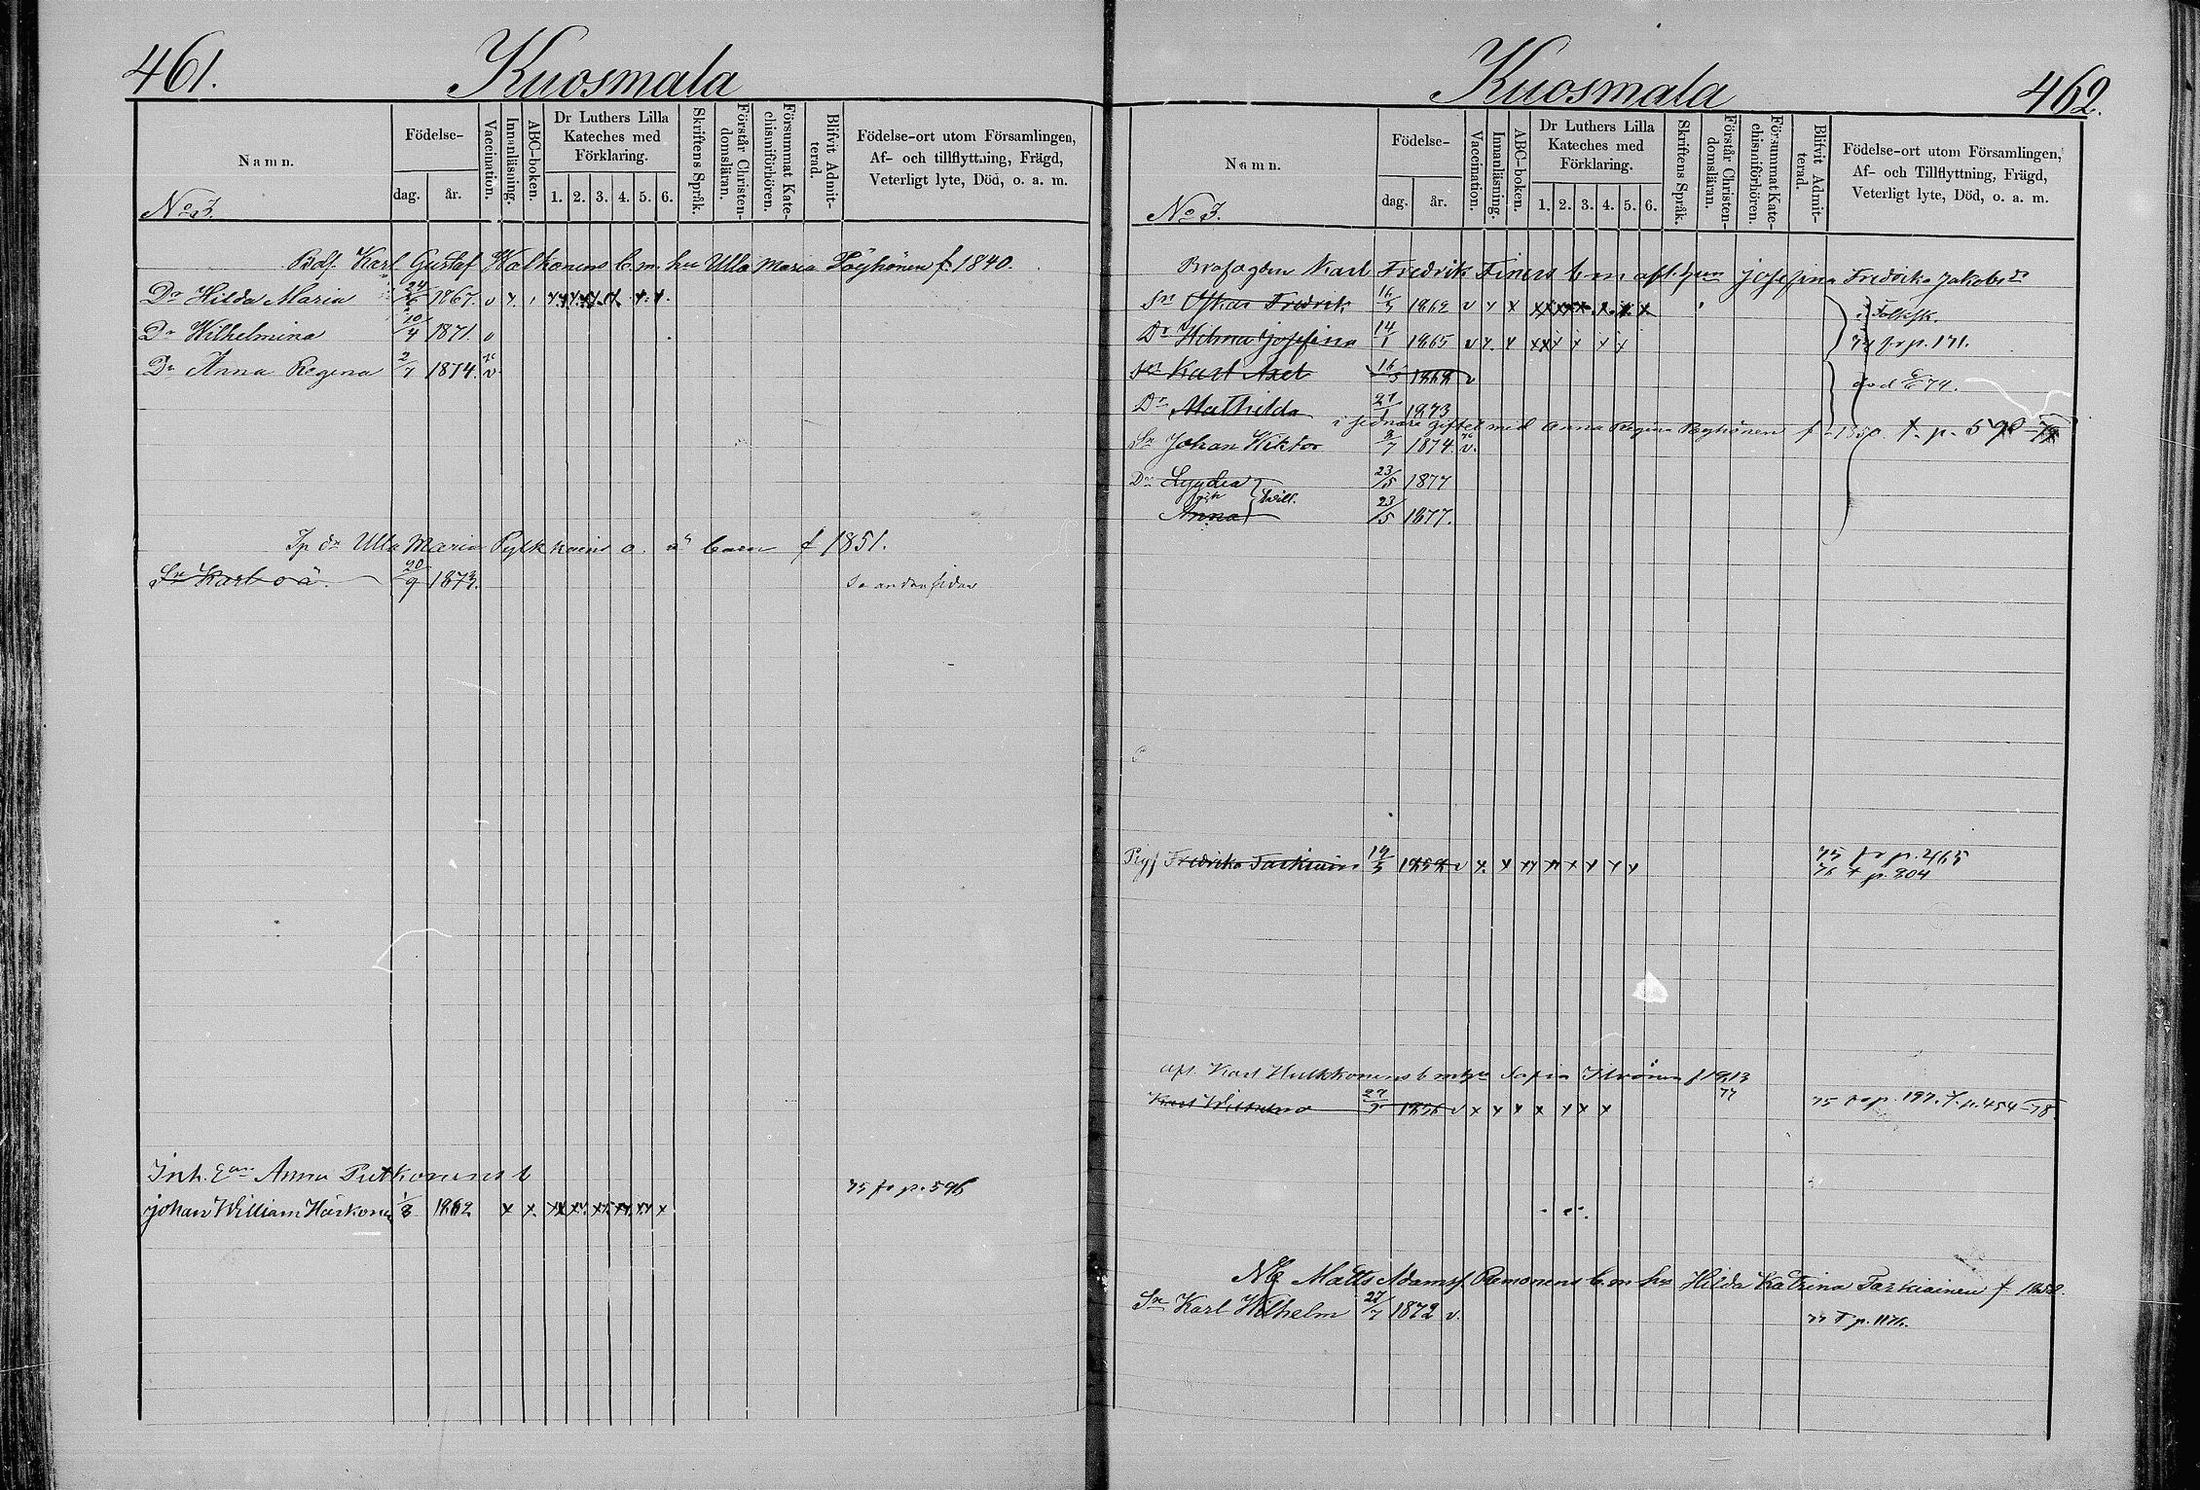 461.
Kuosmala
Namn.
Födelse-
dag.
år.
Vaccination.
Innanläsning.
ABC-boken.
Dr Luthers Lilla Kateches med Förklaring.
1. 2. 3. 4. 5. 6.
Skriftens Språk.
Förstår Christendomsläran.
Försummat Katechismiförhören.
Blifvit Admitterad.
Födelse-ort utom Församlingen,
Af- och tillflyttning, Frägd,
Veterligt lyte, Död, o. a. m.
No 3.
Karl Gustaf b. m. hu Ulla Maria Pöyhönen f. 1840.
Dr Hilda Maria 24/6 1867. v
Dr Wilhelmina 10/4 1871. v
Dr Anna Regina 2/7 1874. v
dr Ulla Maria o. ä barn f 1851.
Sn Karl o ä. 20/9 1873.
Inh. Anna Putkonens b
Johan William 1/8 1862 75 fr p. 596
462.
Kuosmala
Namn.
Födelse-
dag.
år.
Vaccination.
Innanläsning.
ABC-boken.
Dr Luthers Lilla Kateches med Förklaring.
1. 2. 3. 4. 5. 6.
Skriftens Språk.
Förstår Christendomsläran.
Försummat Katechismiförhören.
Blifvit Admitterad.
Födelse-ort utom Församlingen,
Af- och Tillflyttning, Frägd,
Veterligt lyte, Död, o. a. m.
No 3.
Karl Fredrik Finers b m afl. hun Josefina Fredrika Jakobsdr
Sn Oskar Fredrik 16/5 1862 v i Folksk.
Dr Hilma Josefina 14/1 1865 v 74 fr p. 171.
Sn Karl Axel 16/5 1868 v död 79.
Dr Mathilda 27/1 1873
i sednare giftet med Anna Regina Pöyhönen f 1850. t. p. 590
Sn Johan Wiktor 8/7 1874. v.
Dr Lyydia 23/5 1877
och tvill.
Anna 23/5 1877.
Fredrika Tarkiain 19/5 v 75 fr p. 465
76 t p. 304
afl. Karl Hulkkonens b m Sofia f 1813
Karl 27 v 75 fr p. 197. t. p. 454-78.
Matts Adamsf. b. m. hu Hilda Katrina Tarkiainen f
Sn Karl Wilhelm 27/7 1872 v. 77 T p. 1176.